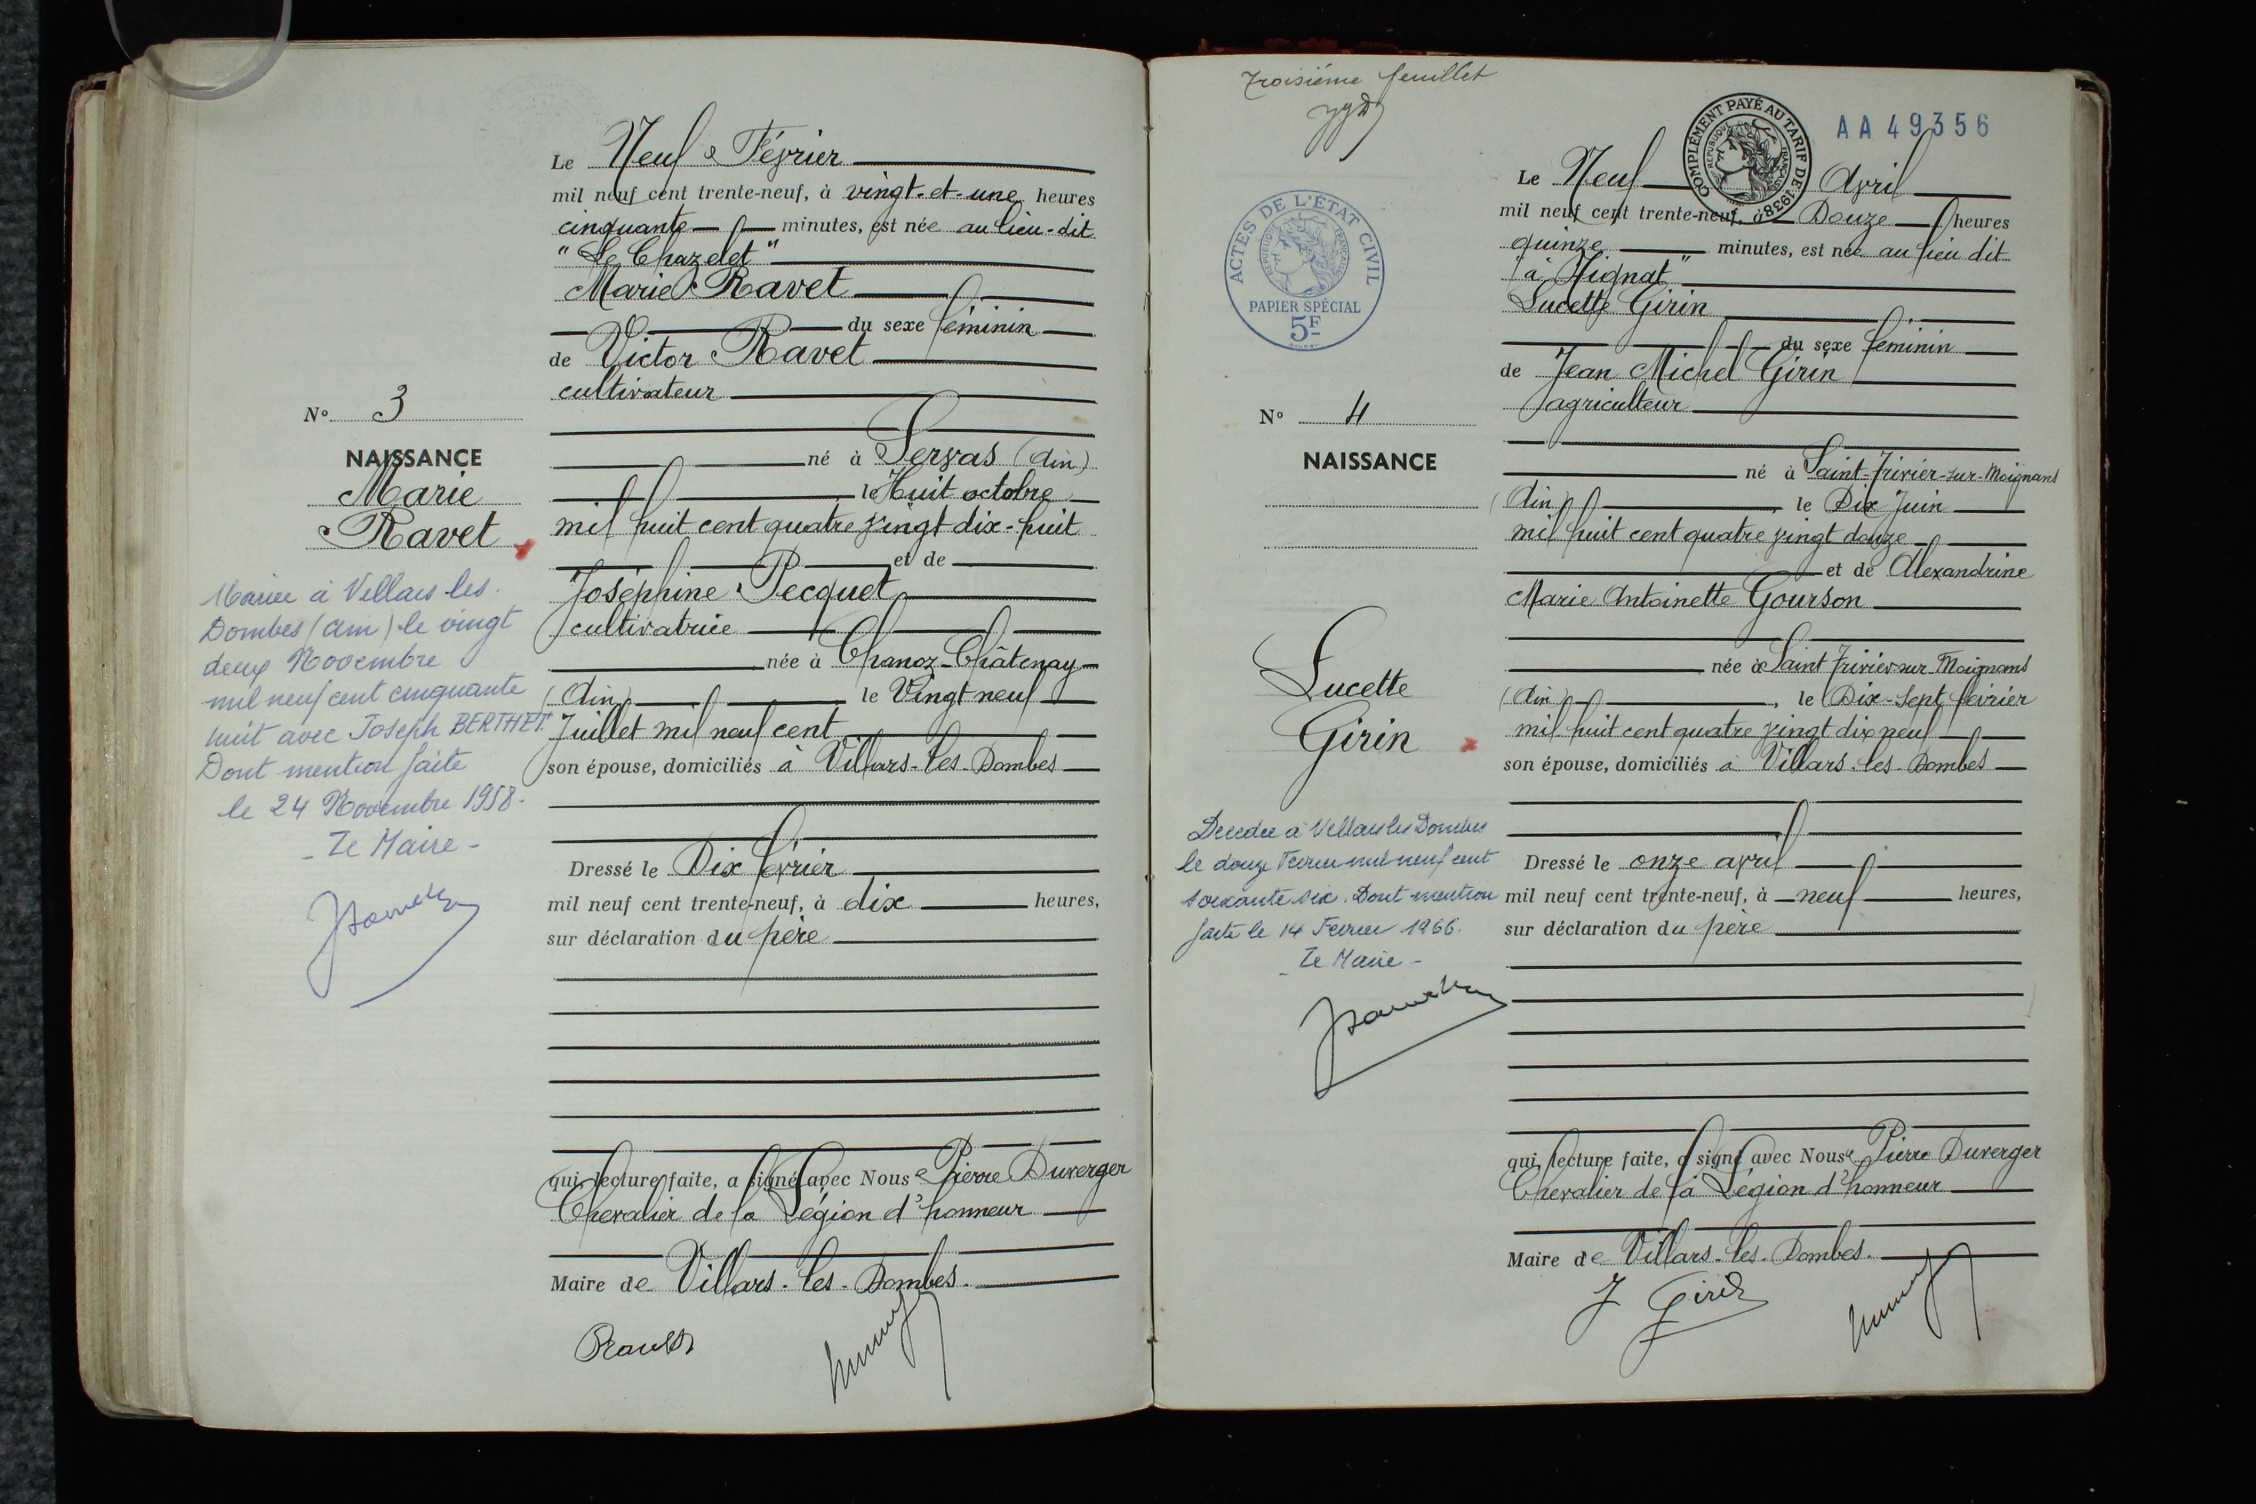 Le Neuf Février
mil neuf cent trente-neuf, à vingt-et-une heures
cinquante minutes, est née au lieu-dit
"Le Chazelet"
Marie Ravet
du sexe féminin
de Victor Ravet
cultivateur
né à Servas (Ain)
le Huit octobre
mil huit cent quatre vingt dix-huit
et de
Joséphine Pecquet
cultivatrice
née à Chanoz-Châtenay
(Ain) le Vingt neuf
Juillet mil neuf cent
son épouse, domiciliés à Villars-les-Dombes
Dressé le Dix février
mil neuf cent trente-neuf, à dix heures,
sur déclaration du père
qui, lecture faite, a signé avec Nous Pierre Duverger
Chevalier de la Légion d'honneur
Maire de Villars-les-Dombes.
N° 3
NAISSANCE
Marie
Ravet
Mariée à Villars les
Dombes (Ain) le vingt
deux Novembre
mil neuf cent cinquante
huit avec Joseph BERTHET.
Dont mention faite
le 24 Novembre 1958-
- Le Maire -
Troisième feuillet
COMPLÉMENT PAYÉ AU TARIF DE 1938
RÉPUBLIQUE FRANÇAISE
AA 49356
ACTES DE L'ÉTAT CIVIL
RÉPUBLIQUE FRANÇAISE
PAPIER SPÉCIAL
5F
Le Neuf Avril
mil neuf cent trente-neuf, à Douze heures
quinze minutes, est née au lieu dit
"à Hignat"
Lucette Girin
du sexe féminin
de Jean Michel Girin
agriculteur
né à Saint-Trivier-sur-Moignans
(Ain), le Dix Juin
mil huit cent quatre vingt douze
et de Alexandrine
Marie Antoinette Gourson
née à Saint Trivier sur Moignans
(Ain), le Dix-Sept février
mil huit cent quatre vingt dix neuf
son épouse, domiciliés à Villars-les-Dombes
Dressé le onze avril
mil neuf cent trente-neuf, à neuf heures,
sur déclaration du père
qui, lecture faite, a signé avec Nous Pierre Duverger
Chevalier de la Légion d'honneur
Maire de Villars-les-Dombes.
J Girin
N° 4
NAISSANCE
Lucette
Girin
Décédée à Villars les Dombes
le douze Février mil neuf cent
soixante six. Dont mention
faite le 14 Février 1966.
- Le Maire -